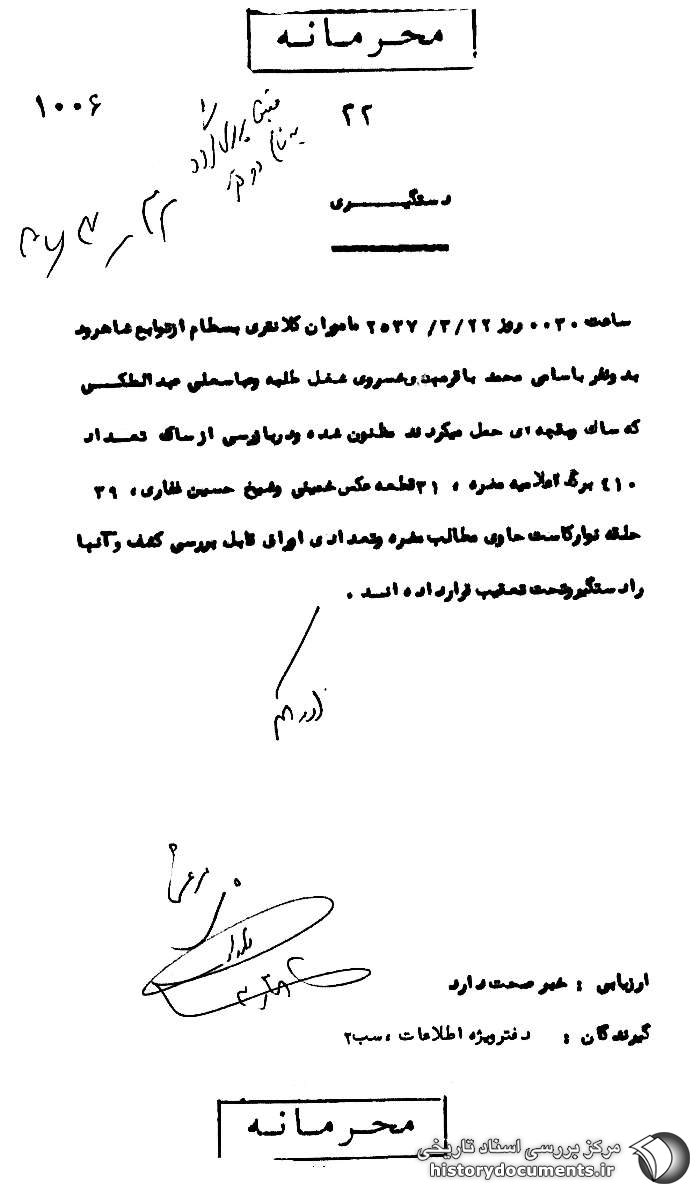 محرمانه
۱۰۰۶
۲۲
دستگیـــــری
ساعت ۰۰۳۰ روز ۲۵۳۷/۳/۲۲ ماموران کلانتری بسطام از توابع شاهرود
بدونفر باسامی محمد باقر خسروی شغل طلبه وعباسعلی عبدالملکـــی
که ساک وبقچه ای حمل میکردند مظنون شده ودربازرسی از ساک تعــداد
۴۱۰ برگ اعلامیه مضره ، ۳۱قطعه عکس خمینی وشیخ حسین غفاری، ۳۹
حلقه نوارکاست حاوی مطالب مضره وتعدادی اوراق قابل بررسی کشف وآنها
رادستگیروتحت تعقیب قرارداده انــد .
ارزیابی : خبر صحت دارد
گیرندگان : دفترویژه اطلاعات ، سب۲
محرمانه
مرکز بررسی اسناد تاریخی
historydocuments.ir